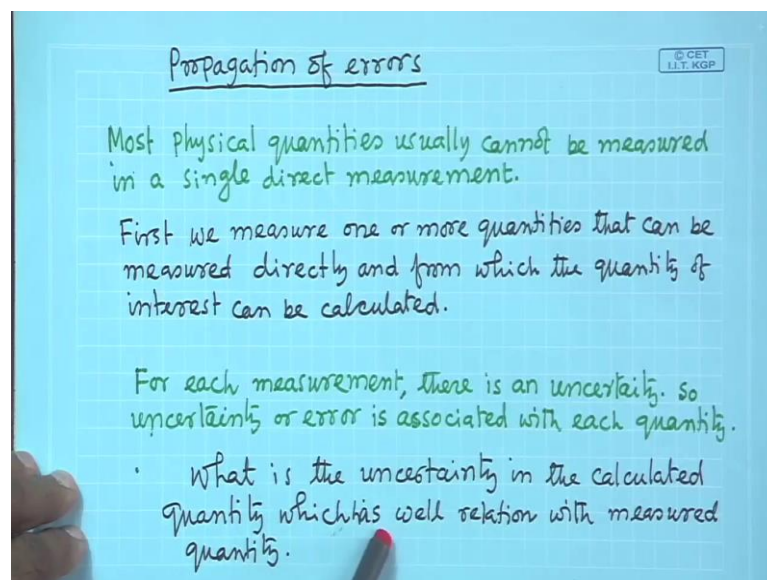 Propagation of errors
© CET
I.I.T. KGP
Most physical quantities usually cannot be measured
in a single direct measurement.
First we measure one or more quantities that can be
measured directly and from which the quantity of
interest can be calculated.
For each measurement, there is an uncertaity. so
uncertainty or error is associated with each quantity.
What is the uncertainty in the calculated
quantity which has well relation with measured
quantity.